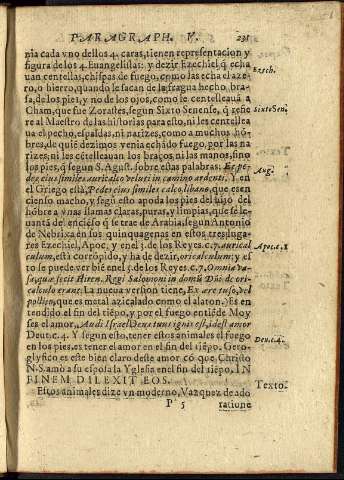 PARAGRAPH. V. 231
nia cada vno dellos 4. caras, tienen representacion y
figura de los 4. Euangelistas: y dezir Ezechiel, q̃ echa
uan centellas, chispas de fuego, como las echa el aze-
ro, o hierro, quando le sacan de la fragua hecho bra-
sa, de los pies, y no de los ojos, como le centelleauã a
Cham, que fue Zorastes, segun Sixto Senense, q̃ refie
re al Maestro de las historias para esto, ni les cẽtellea
ua el pecho, espaldas, ni narizes, como a muchos hõ-
bres, de quiẽ dezimos venia echãdo fuego, por las na
rizes, ni les cẽtelleauan los braços, ni las manos, sino
los pies, q̃ segun S. August. sobre estas palabras: Et pe-
des eius similes auricalco velut in camino ardenti. Y en
el Griego està, Pedes eius similes calco, libano, que es en
cienso macho, y segũ esto apoda los pies del hijo del
hõbre a vnas llamas claras, puras, y limpias, que se le-
uantã del enciẽso q̃ se trae de Arabia, segun Antonio
de Nebrixa en sus quinquagenas en estos tres luga-
res Ezechiel, Apoc. y en el 3. de los Reyes. c. 7. aurical
culum, està corrõpido, y ha de dezir, oricalculum; y es
to se puede ver biẽ en el 3. de los Reyes c. 7. Omnia va-
sa, quæ fecit Hiren. Regi Salomoni in domũ Dñi de ori-
calculo erant. La nueua version tiene, Ex ære tuso, vel
pollien, que es metal azicalado como el alaton. Es en
tendido el fin del tiẽpo, y por el fuego entiẽde Moy
ses el amor. Audi Israel Deus tuus ignis est, i dest amor
Deut. c. 4. Y segun esto, tener estos animales el fuego
en los pies, es tener el amor en el fin del tiẽpo. Gero-
glyfico es este bien claro deste amor cõ que, Christo
N.S. amò a su esposa la Yglesia en el fin del tiẽpo, IN
FINEM DILEXIT EOS.
Estos animales dize vn moderno, Vazquez de ado
P 5 ratione
Ezech.
Sixto Sen.
Aug.
Apoc. c. 1
Deu. c. 4.
Texto.